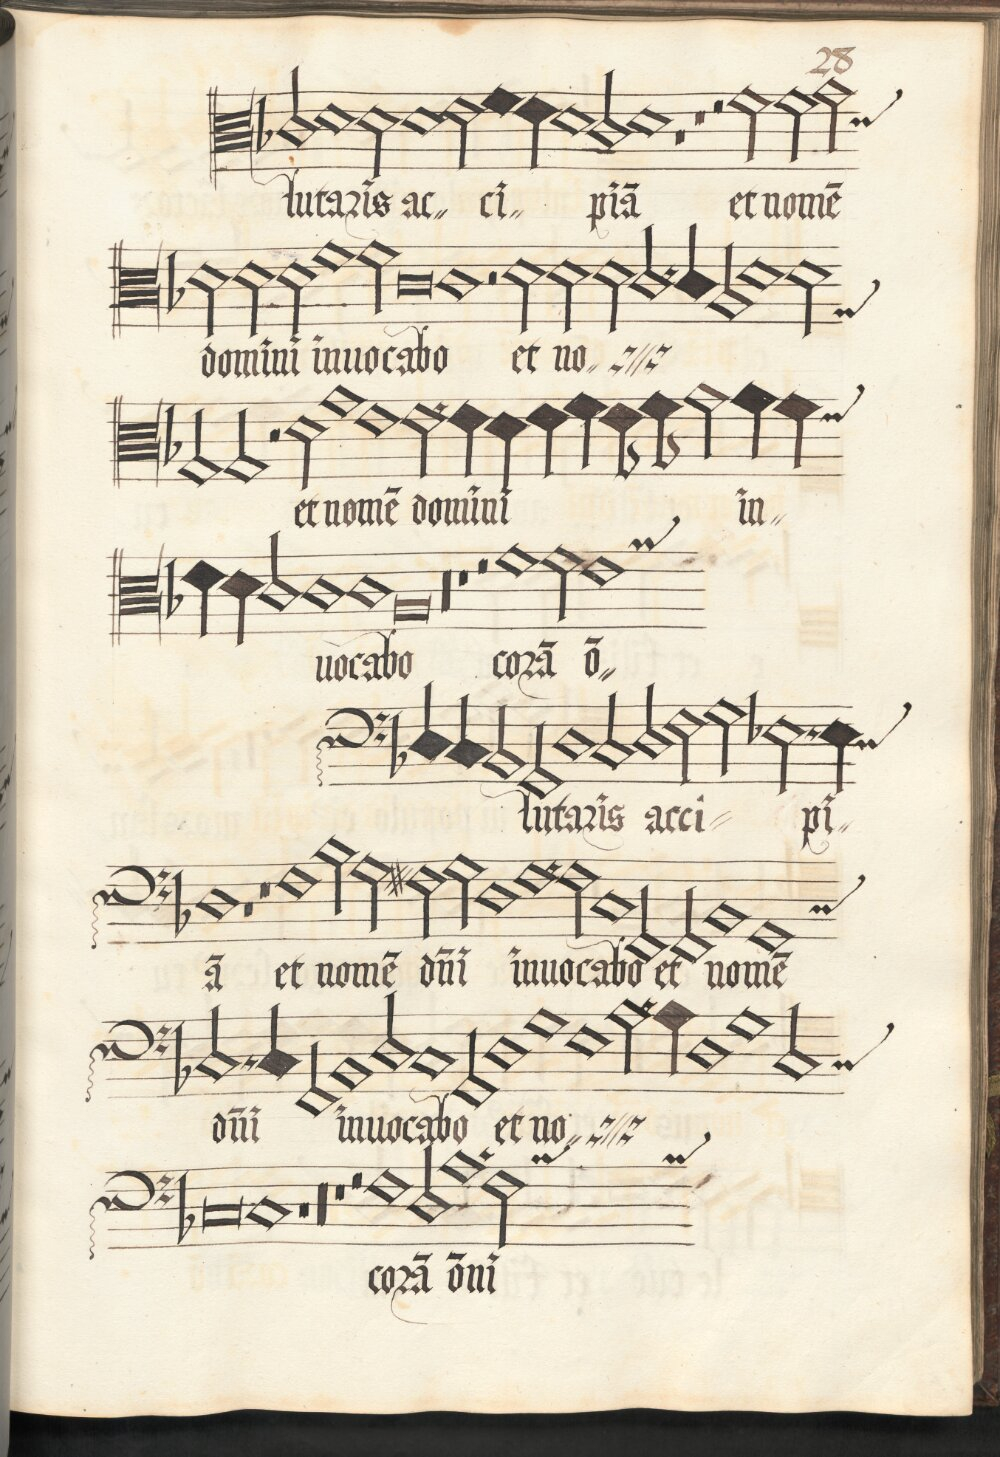 28
lutaris ac„ ci„ piā et nomē
domini inuocabo et no„
et nomē domini in„
uocabo corā ō„
lutaris acci„ pi„
ā et nomē dn̄i inuocabo et nomē
dn̄i inuocabo et no„
corā ōni